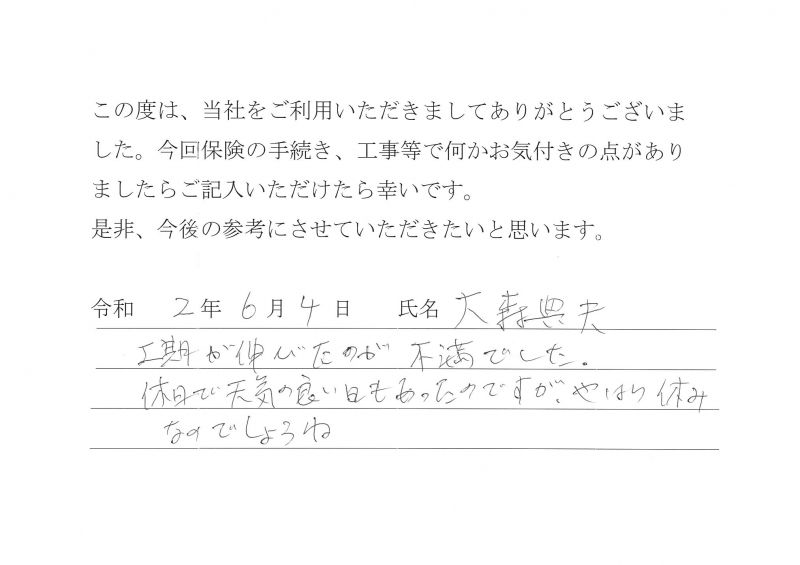 この度は、当社をご利用いただきましてありがとうございま
した。今回保険の手続き、工事等で何かお気付きの点があり
ましたらご記入いただけたら幸いです。
是非、今後の参考にさせていただきたいと思います。
令和 2年 6月 4日 氏名 大森典夫
工期が伸びたのが 不満でした。
休日で天気の良い日もあったのですが、やはり休み
なのでしょうね